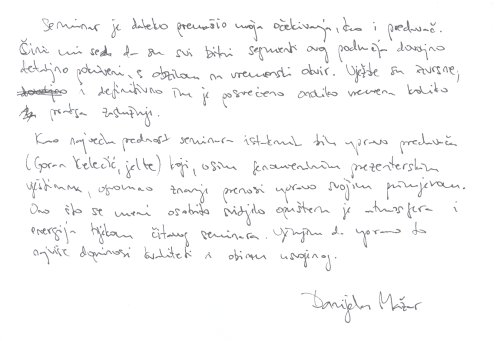 Seminar je daleko premašio moja očekivanja, kao i predavač.
Čini mi se da su svi bitni segmenti ovog područja dovoljno
detaljno pokriveni, s obzirom na vremenski okvir. Vježbe su izvrsne,
i definitivno im je posvećeno onoliko vremena koliko
zaslužuju.
Kao najveću prednost seminara istaknula bih upravo predavača
(Goran Kelečić, jel'te) koji, osim fenomenalnim prezenterskim
vještinama, ogromno znanje prenosi upravo svojim primjerom.
Ono što se meni osobito svidjelo opuštena je atmosfera i
energija tijekom čitavog seminara. Vjerujem da upravo to
najviše doprinosi kvaliteti i obimu usvojenog.
Danijela Mažar